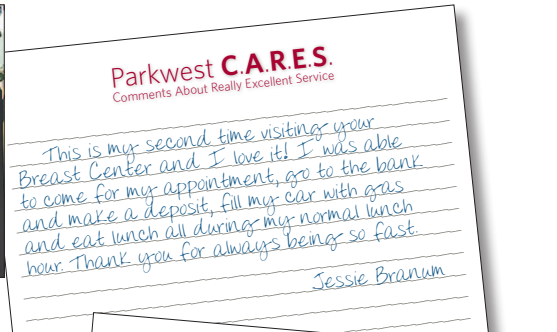 Parkwest C.A.R.E.S.
Comments About Really Excellent Service
This is my second time visiting your
Breast Center and I love it! I was able
to come for my appointment, go to the bank
and make a deposit, fill my car with gas
and eat lunch all during my normal lunch
hour. Thank you for always being so fast.
Jessie Branum